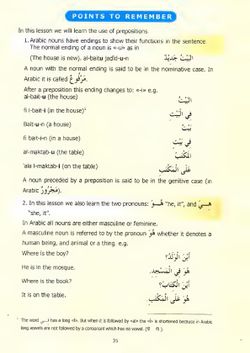 POINTS TO REMEMBER
In this lesson we will learn the use of prepositions.
1. Arabic nouns have endings to show their functions in the sentence.
The normal ending of a noun is «-u» as in
(The house is new). al-baitu jadîd-u-n البَيْتُ جَدِيْدٌ
A noun with the normal ending is said to be in the nominative case. In
Arabic it is called مَرْفُوْعٌ.
After a preposition this ending changes to: «-i» e.g.
al-bait-u (the house) البَيْتُ
fi l-bait-i (in the house)¹ فِي البَيْتِ
Bait-u-n (a house) بَيْتٌ
fi bait-i-n (in a house) فِي بَيْتٍ
al-maktab-u (the table) المَكْتَبُ
'ala l-maktab-i (on the table) عَلَى المَكْتَبِ
A noun preceded by a preposition is said to be in the genitive case (in
Arabic مَجْرُوْرٌ).
2. In this lesson we also learn the two pronouns: هُوَ "he, it", and هِيَ
"she, it".
In Arabic all nouns are either masculine or feminine.
A masculine noun is referred to by the pronoun هُوَ whether it denotes a
human being, and animal or a thing. e.g.
Where is the boy? أَيْنَ الْوَلَدُ؟
He is in the mosque. هُوَ فِي الْمَسْجِدِ.
Where is the book? أَيْنَ الْكِتَابُ؟
It is on the table. هُوَ عَلَى الْمَكْتَبِ
¹ The word في has a long «î». But when it is followed by «al» the «î» is shortened because in Arabic
long vowels are not followed by a consonant which has no vowel.